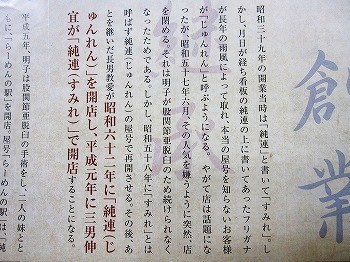 創業
昭和三十九年の開業当時は「純連」と書いて「すみれ」。し
かし、月日が経ち看板の純連の上に書いてあったフリガナ
が長年の雨風によって取れ、本当の屋号を知らないお客様
が「じゅんれん」と呼ぶようになる。やがて店は話題にな
ったが、昭和五十七年六月、その人気を嫌うように突然、店
を閉める。それは明子が股関節亜脱臼のため続けられなく
なったためである。しかし、昭和五十八年に「すみれ」とは
呼ばず純連（じゅんれん）の屋号で再開させる。その後、あ
とを継いだ長男教愛が昭和六十二年に「純連（じ
ゅんれん）」を開店し、平成元年に三男伸
宜が「純連（すみれ）」で開店することになる。
平成五年、明子は股関節亜脱臼の手術をし、二人の妹とと
もに、「らーめんの駅」を開店。屋号「らーめんの駅」は、「純